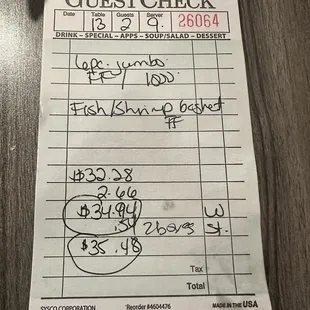 GUESTCHECK
Date Table Guests Server
13 2 9. 26064
DRINK – SPECIAL – APPS – SOUP/SALAD – DESSERT
6pc. jumbo
FF / 1000
Fish/Shrimp basket
FF
$32.28
2.66
$34.94 W
.54 2 boxes St.
$35.48
Tax
Total
SYSCO CORPORATION Reorder #4604476 MADE IN THE USA